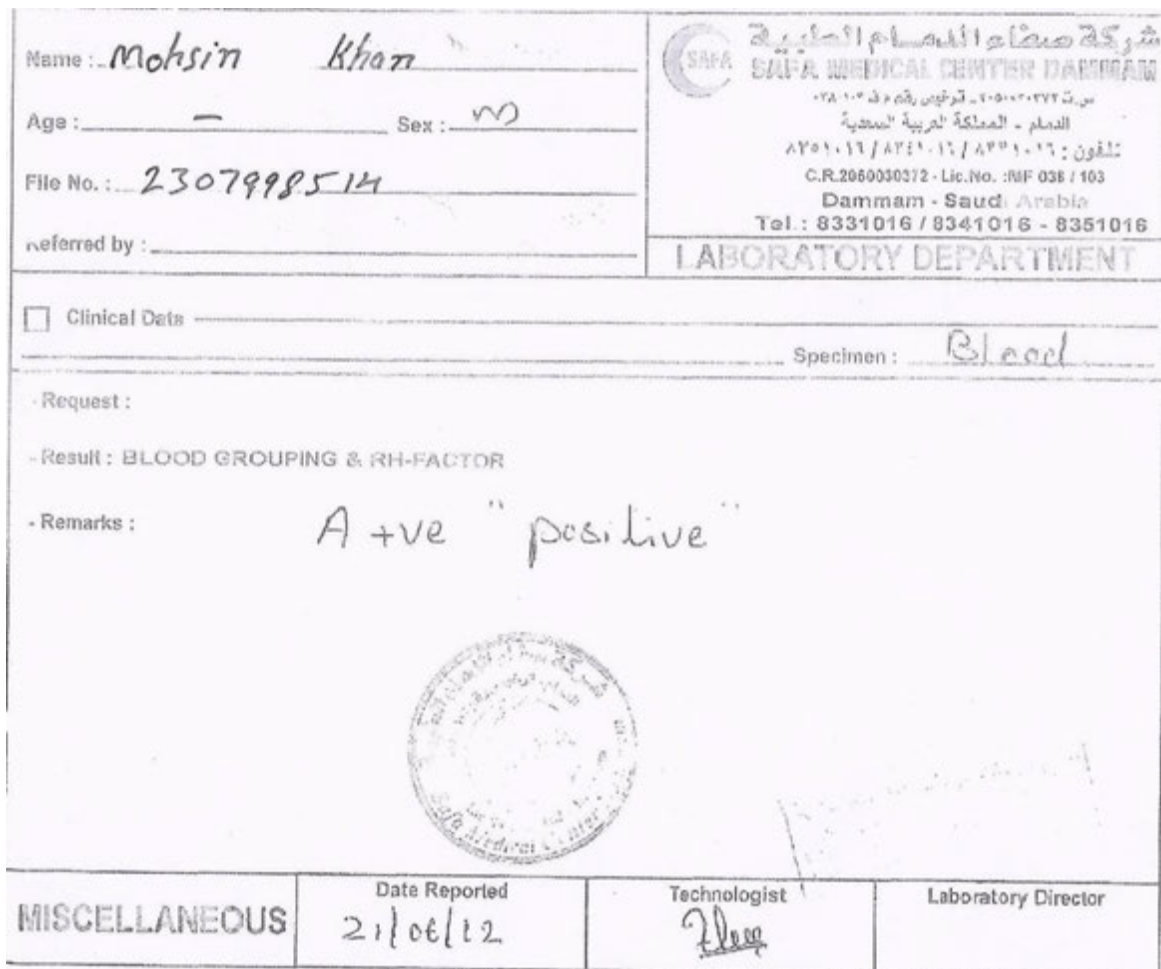 Name : Mohsin Khan
Age : —
Sex : M
File No. : 2307998514
Referred by :
SAFA
شركة صفاء الدمام الطبية
SAFA MEDICAL CENTER DAMMAM
الدمام - المملكة العربية السعودية
تلفون : ٨٣٣١٠١٦ / ٨٣٤١٠١٦ / ٨٣٥١٠١٦
C.R.2050030372 - Lic.No. :MF 038 / 103
Dammam - Saudi Arabia
Tel.: 8331016 / 8341016 - 8351016
LABORATORY DEPARTMENT
Clinical Data
Specimen : Blood
- Request :
- Result : BLOOD GROUPING & RH-FACTOR
- Remarks : A +ve "positive"
Safa Medical Center
MISCELLANEOUS
Date Reported
21/06/12
Technologist
Laboratory Director